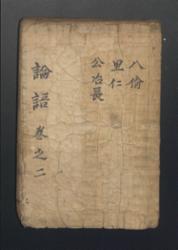 八佾
里仁
公冶長
論語 卷之二